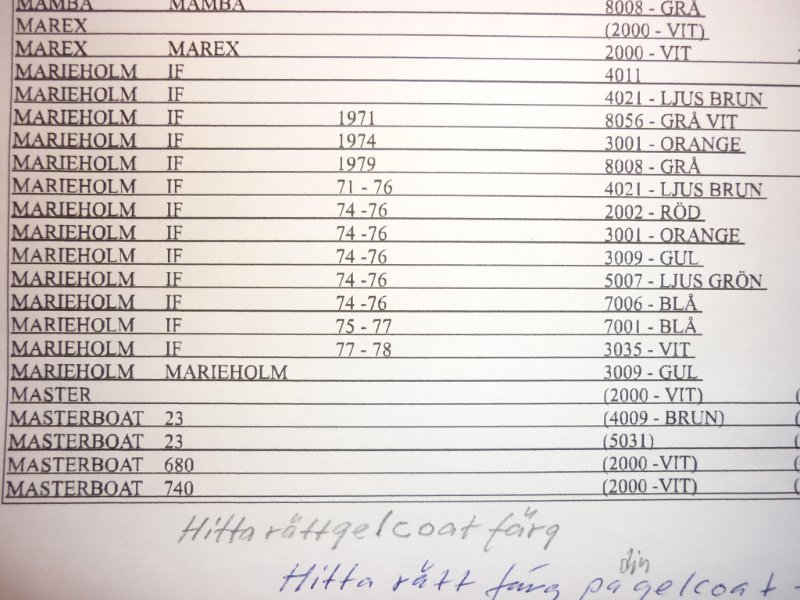 MAMBA MAMBA 8008 - GRÅ
MAREX (2000 - VIT)
MAREX MAREX 2000 - VIT
MARIEHOLM IF 4011
MARIEHOLM IF 4021 - LJUS BRUN
MARIEHOLM IF 1971 8056 - GRÅ VIT
MARIEHOLM IF 1974 3001 - ORANGE
MARIEHOLM IF 1979 8008 - GRÅ
MARIEHOLM IF 71 - 76 4021 - LJUS BRUN
MARIEHOLM IF 74 -76 2002 - RÖD
MARIEHOLM IF 74 -76 3001 - ORANGE
MARIEHOLM IF 74 -76 3009 - GUL
MARIEHOLM IF 74 -76 5007 - LJUS GRÖN
MARIEHOLM IF 74 -76 7006 - BLÅ
MARIEHOLM IF 75 - 77 7001 - BLÅ
MARIEHOLM IF 77 - 78 3035 - VIT
MARIEHOLM MARIEHOLM 3009 - GUL
MASTER (2000 - VIT)
MASTERBOAT 23 (4009 - BRUN)
MASTERBOAT 23 (5031)
MASTERBOAT 680 (2000 -VIT)
MASTERBOAT 740 (2000 -VIT)
Hitta rätt gelcoat färg
din
Hitta rätt färg på gelcoat -